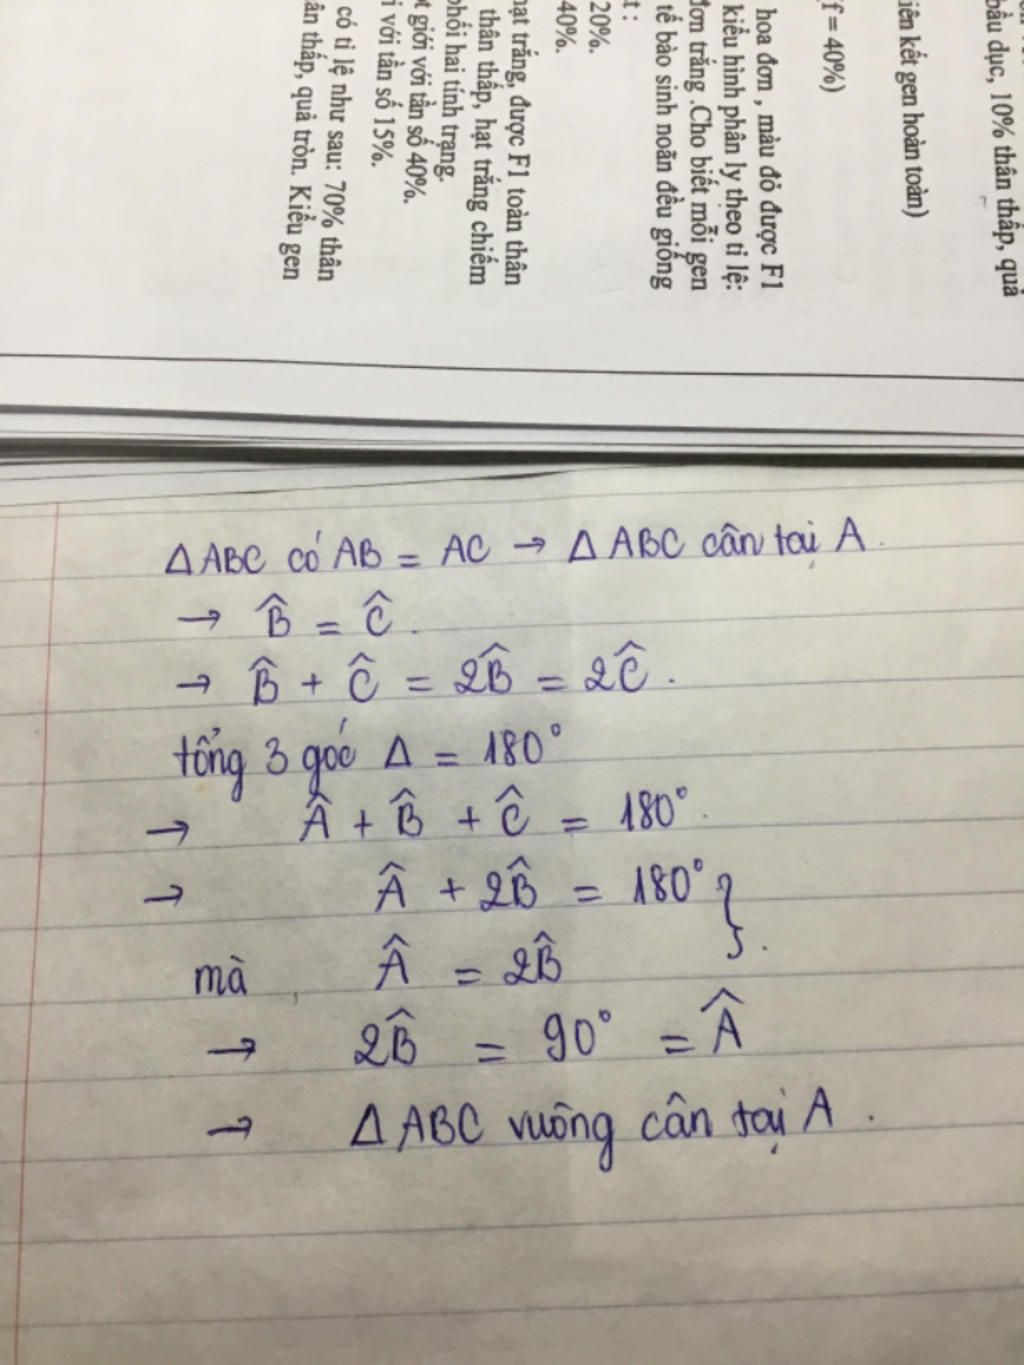 bầu dục, 10% thân thấp, quả
iên kết gen hoàn toàn)
f = 40%)
hoa đơn , màu đỏ được F1
kiểu hình phân ly theo tỉ lệ:
đơn trắng .Cho biết mỗi gen
tế bào sinh noãn đều giống
t :
20%.
40%.
hạt trắng, được F1 toàn thân
thân thấp, hạt trắng chiếm
phối hai tính trạng.
ột giới với tần số 40%.
i với tần số 15%.
có tỉ lệ như sau: 70% thân
ân thấp, quả tròn. Kiểu gen
Δ ABC có AB = AC → Δ ABC cân tại A.
→ B̂ = Ĉ.
→ B̂ + Ĉ = 2B̂ = 2Ĉ.
tổng 3 góc Δ = 180°
→ Â + B̂ + Ĉ = 180°.
→ Â + 2B̂ = 180° }
mà Â = 2B̂ .
→ 2B̂ = 90° = Â
→ Δ ABC vuông cân tại A.